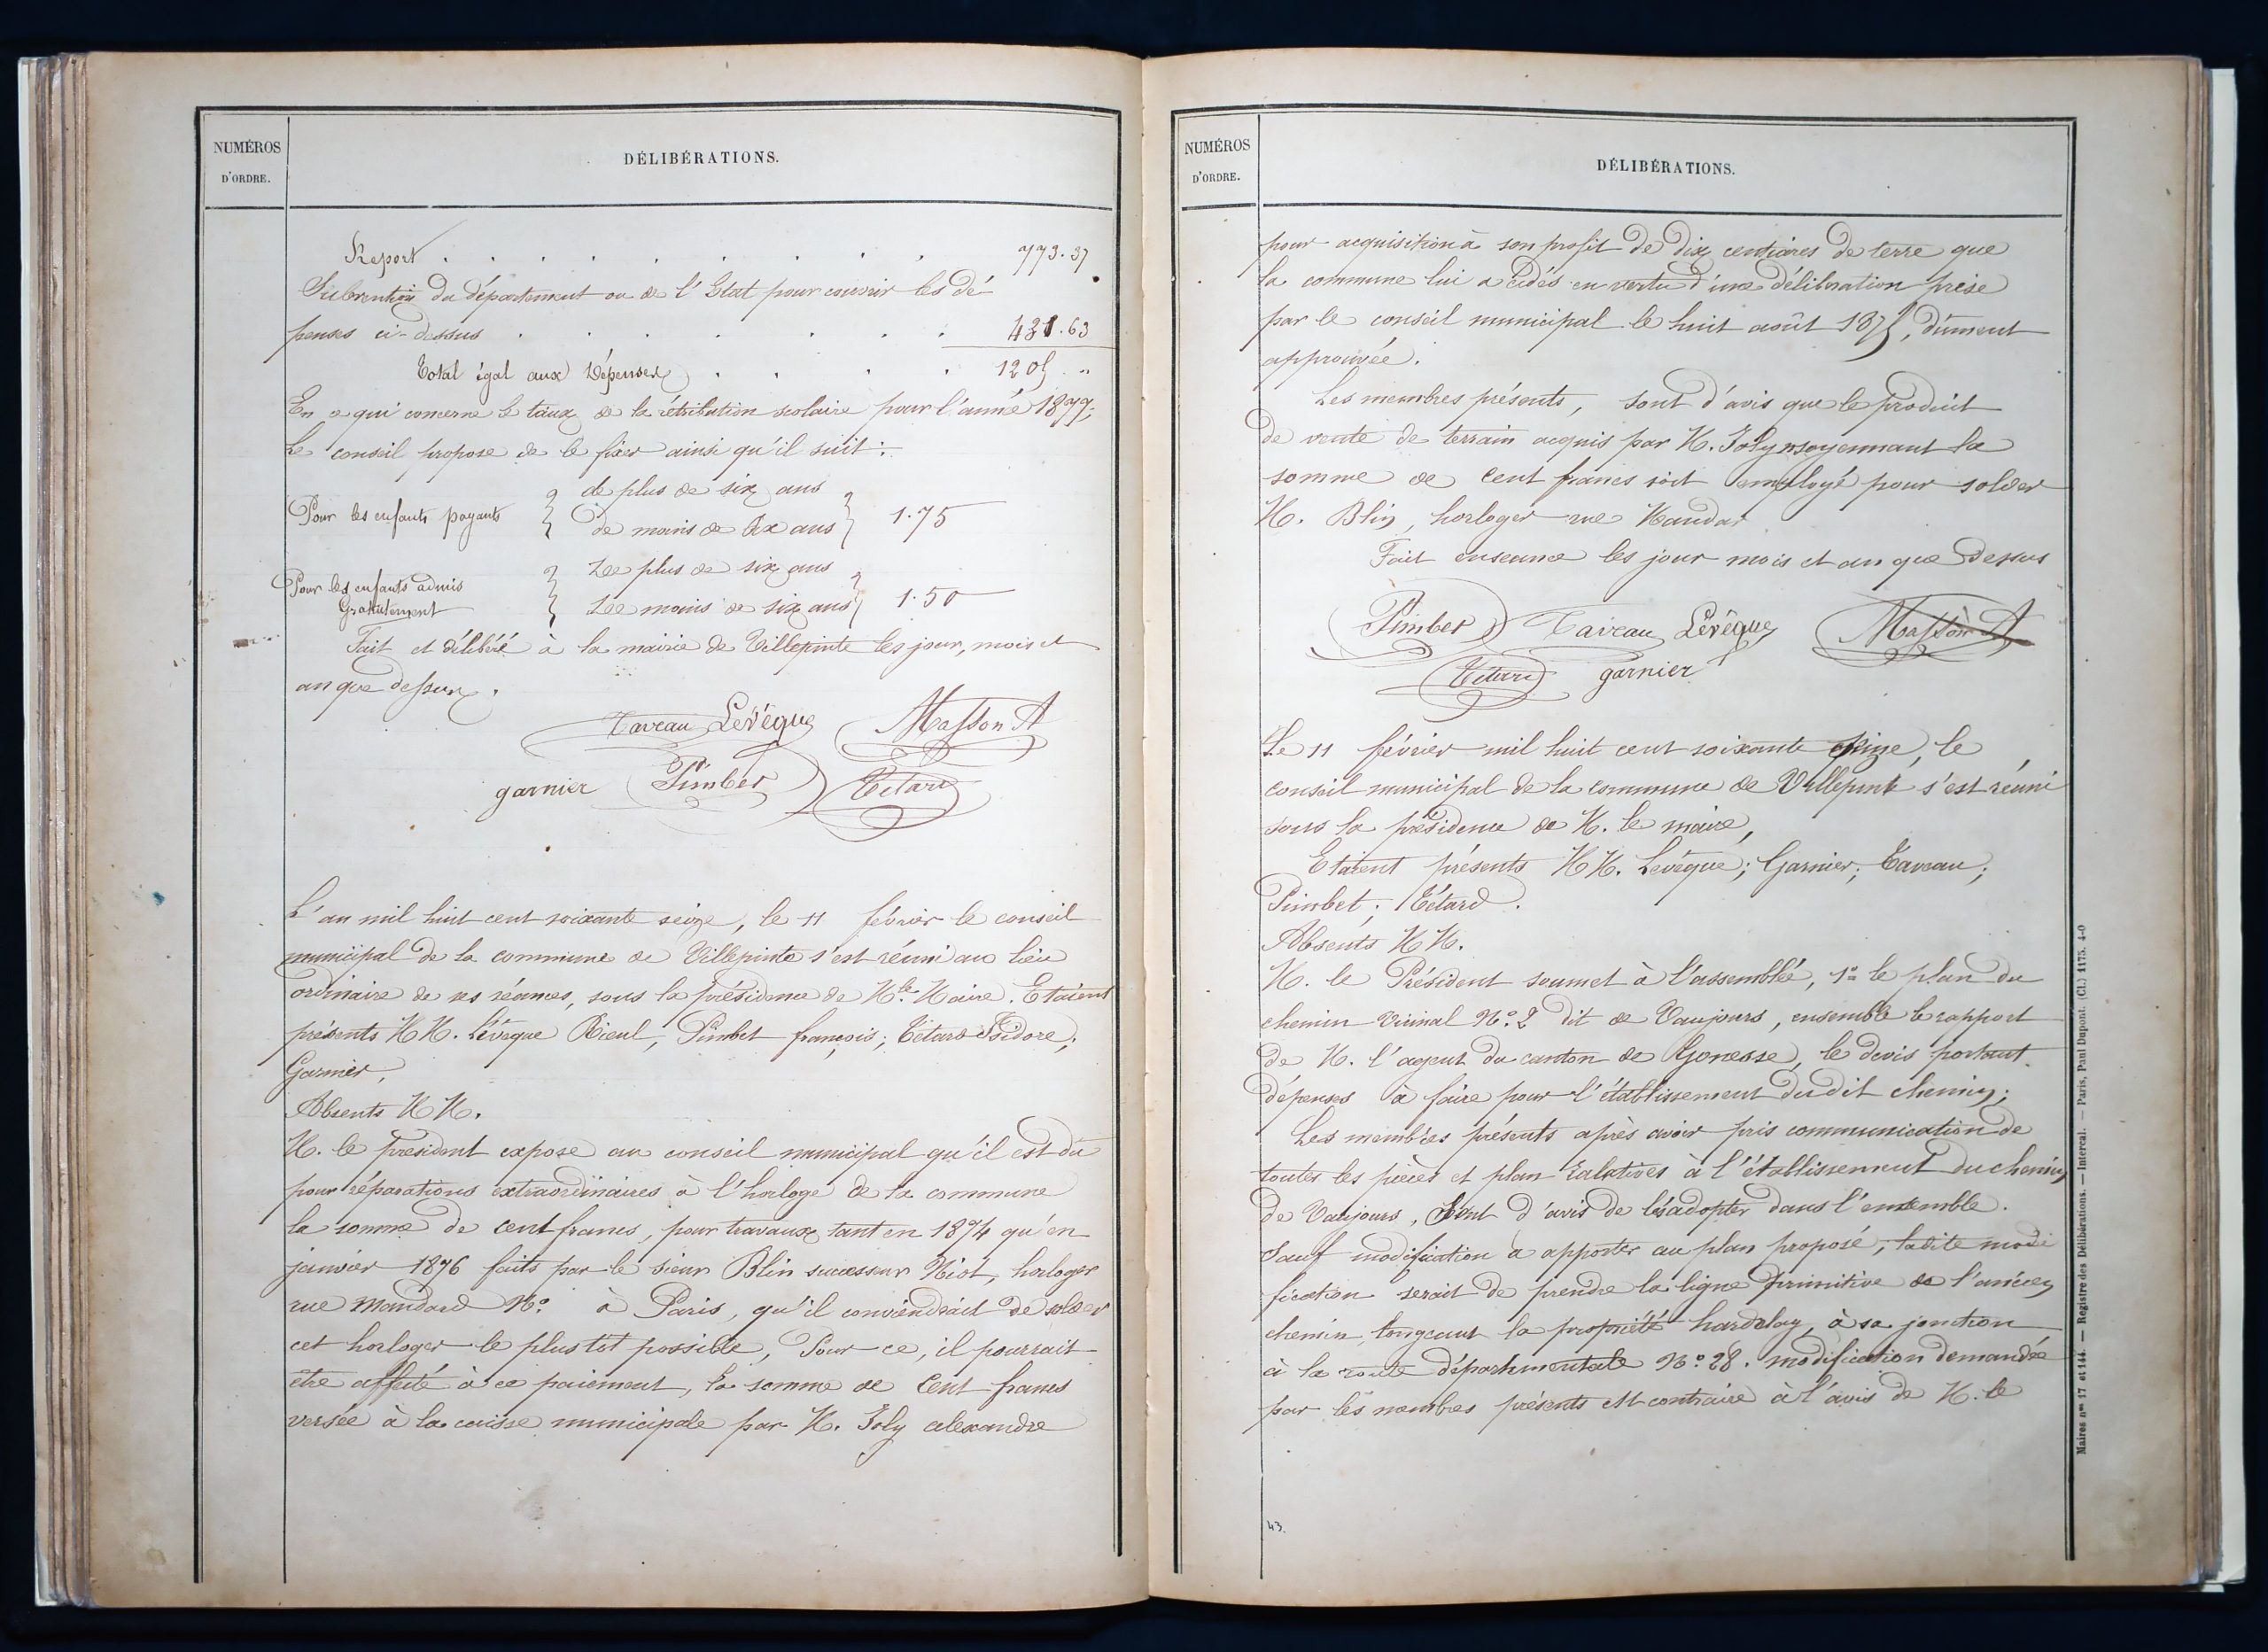 NUMÉROS
D'ORDRE.
DÉLIBÉRATIONS.
Report . . . . . . . . . 773.37
Subvention du département ou de l'Etat pour couvrir les dé
penses ci-dessus . . . . . . . 431.63
Total égal aux Dépenses . . . . 1205 "
En ce qui concerne le taux de la rétribution scolaire pour l'année 1877;
Le conseil propose de le fixer ainsi qu'il suit :
Pour les enfants payants { de plus de six ans
de moins de six ans } 1.75
Pour les enfants admis
Gratuitement { De plus de six ans
De moins de six ans } 1.50
Fait et délibéré à la mairie de Villepinte les jour, mois et
an que dessus.
Taveau Levêque Masson A
garnier Pimbet Tétard
L'an mil huit cent soixante seize, le 11 février le conseil
municipal de la commune de Villepinte s'est réuni au lieu
ordinaire de ses séances, sous la présidence de M. le Maire. Etaient
présents MM. Levêque Rieul, Pimbet françois; Tétard Isidore;
Garnier,
Absents MM.
M. le président expose au conseil municipal qu'il est dû
pour réparations extraordinaires à l'horloge de la commune
la somme de cent francs, pour travaux tant en 1874 qu'en
janvier 1876 faits par le sieur Blin successeur Niot, horloger
rue Mandard No. à Paris, qu'il conviendrait de solder
cet horloger le plus tôt possible, Pour ce, il pourrait
être affecté à ce paiement, la somme de Cent francs
versée à la caisse municipale par M. Joly alexandre
NUMÉROS
D'ORDRE.
DÉLIBÉRATIONS.
pour acquisition à son profit de dix centiares de terre que
la commune lui a cédés en vertu d'une délibération prise
par le conseil municipal le huit août 1875, dûment
approuvée.
Les membres présents, sont d'avis que le produit
de vente de terrain acquis par M. Joly moyennant la
somme de cent francs soit employé pour solder
M. Blin, horloger rue Mandar
Fait en seance les jour mois et an que Dessus
Pimbet Taveau Levêque Masson A
Tétard garnier
Le 11 février mil huit cent soixante seize, le
conseil municipal de la commune de Villepinte s'est réuni
sous la présidence de M. le maire,
Etaient présents MM. Levêque; Garnier; Taveau;
Pimbet; Tétard.
Absents MM.
M. le Président soumet à l'assemblée, 1º le plan du
chemin vicinal No. 2 dit de Vaujours, ensemble le rapport
de M. l'agent du canton de Gonesse, le devis portant
dépenses à faire pour l'établissement du dit chemin;
Les membres présents après avoir pris communication de
toutes les pièces et plan relatives à l'établissement du chemin
de Vaujours, sont d'avis de les adopter dans l'ensemble.
Sauf modification à apporter au plan proposé, ladite modi
fication serait de prendre la ligne primitive de l'ancien
chemin longeant la propriété hardelay, à sa jonction
à la route départementale No. 28. modification demandée
par les membres présents est contraire à l'avis de M. le
43.
Maires nos 17 et 144. — Registre des Délibérations. — Intercal. — Paris, Paul Dupont. (Cl.) 1175. 4-0